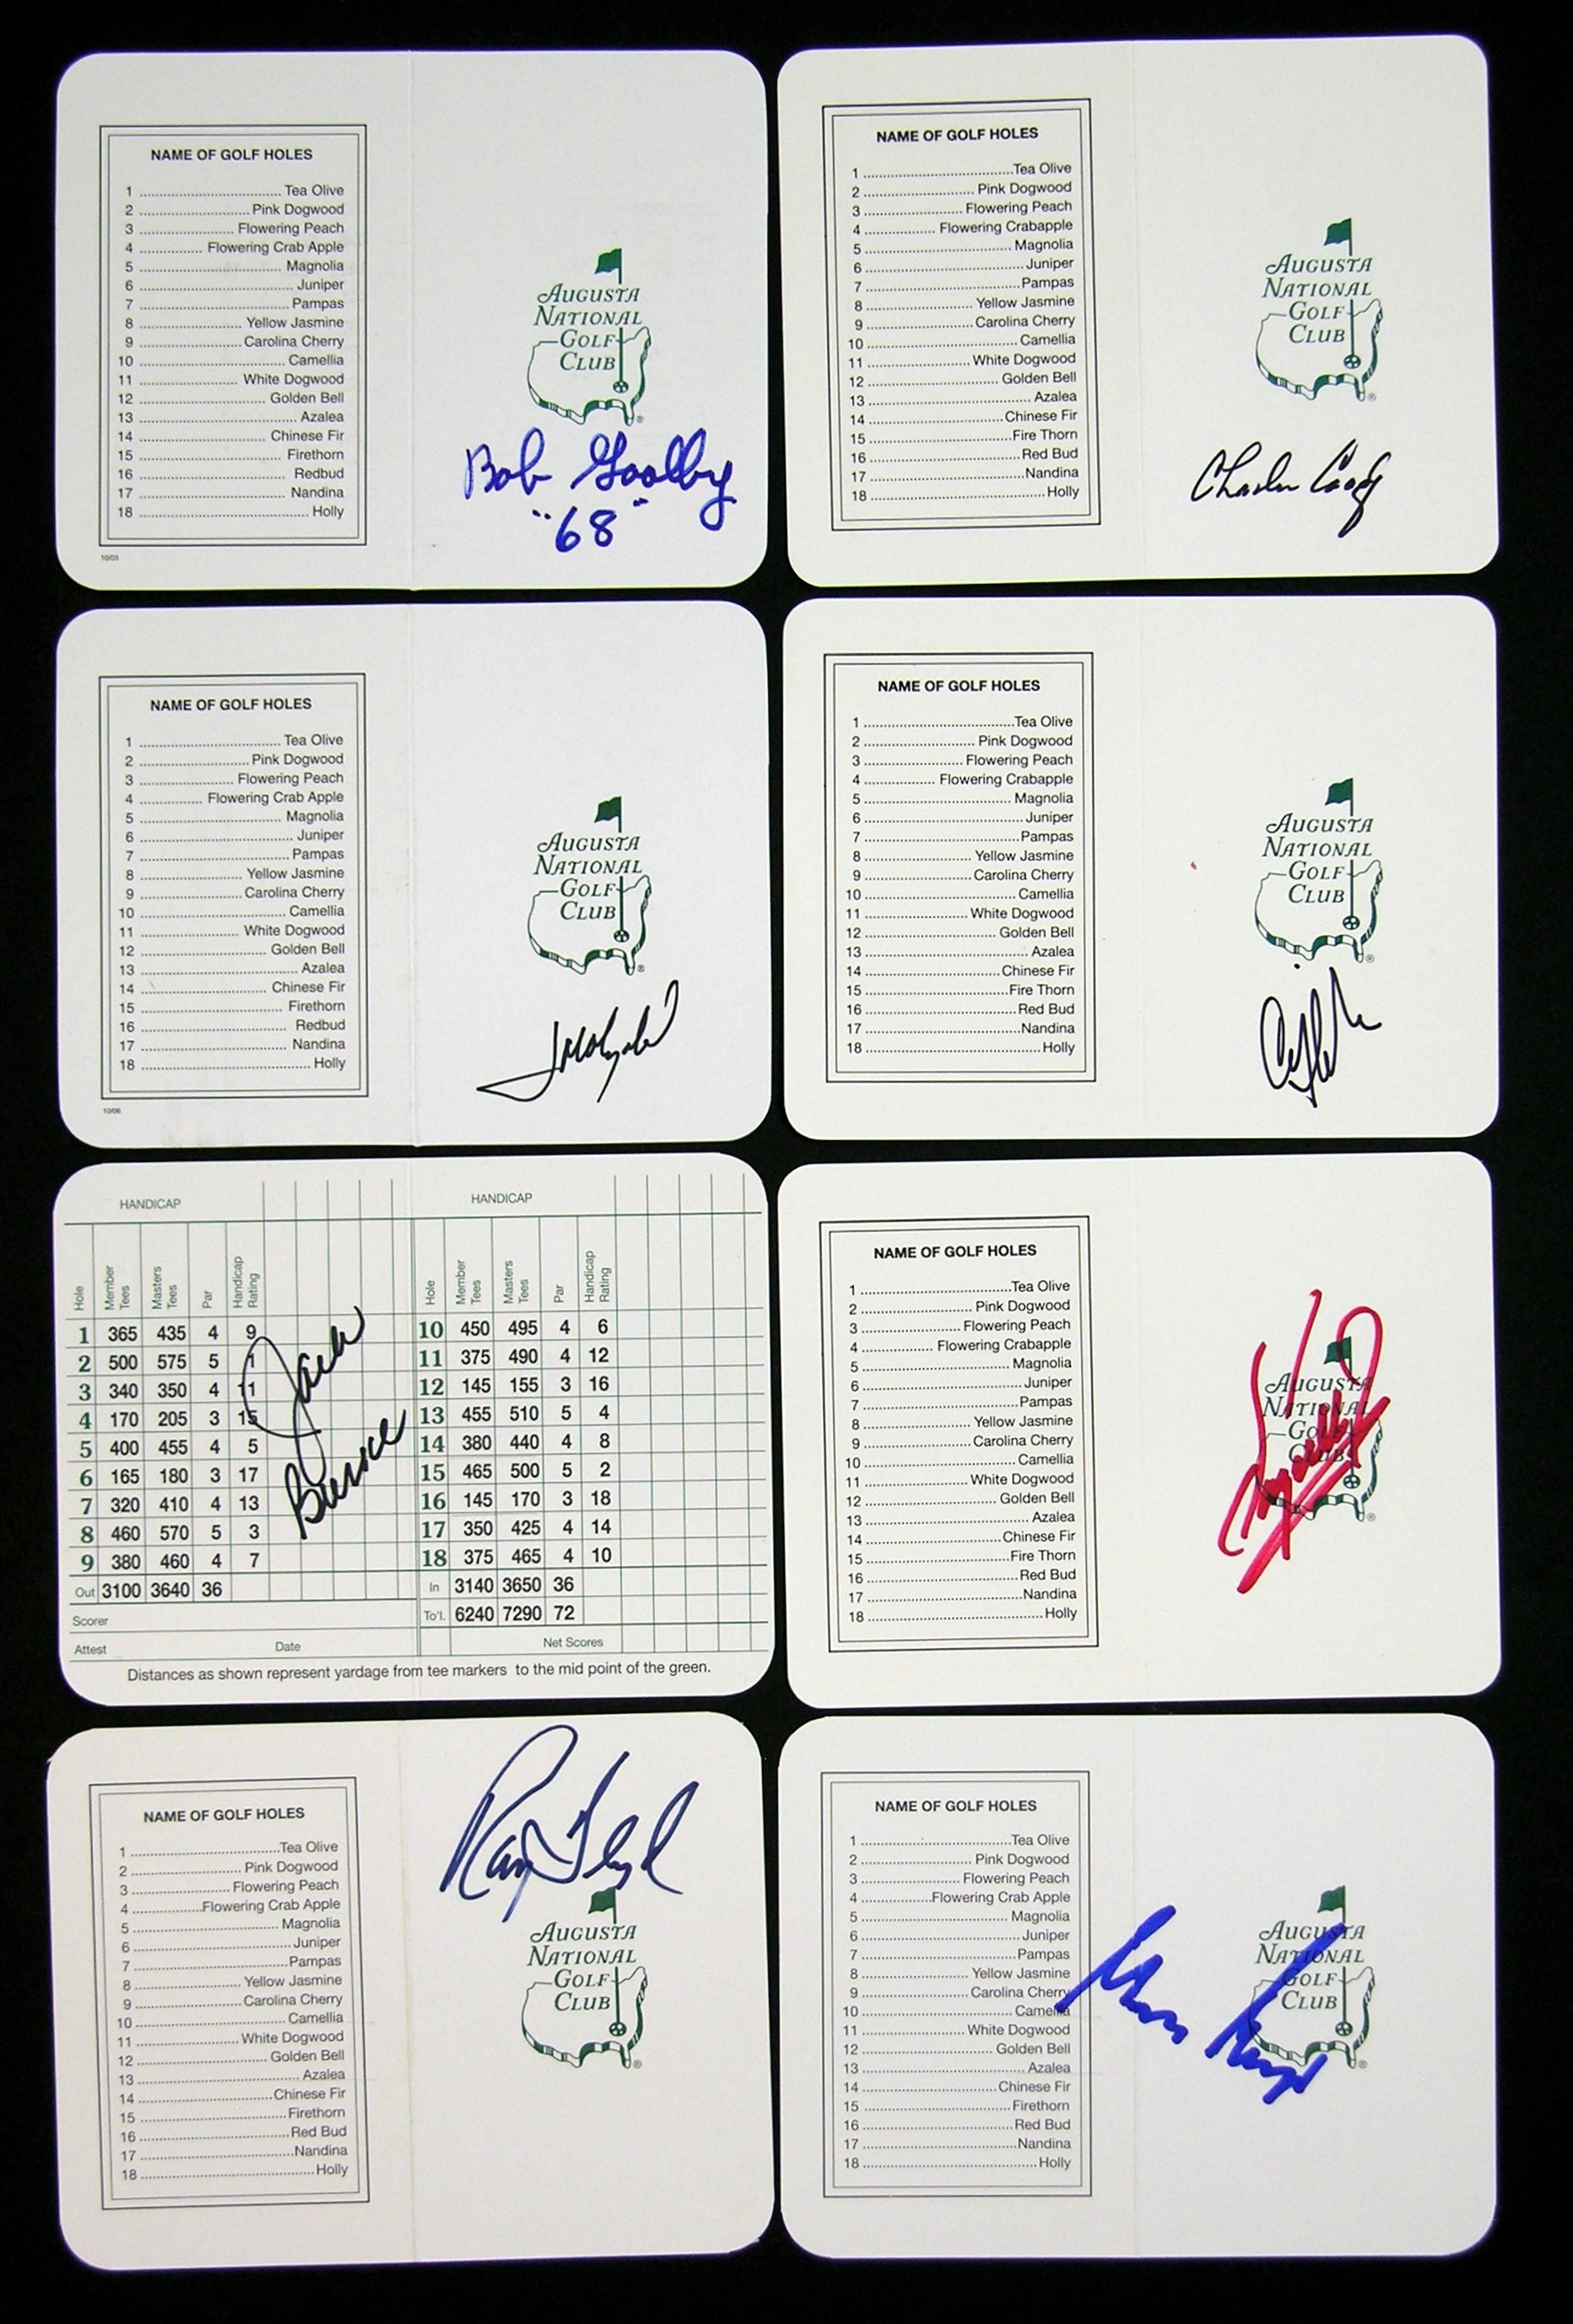 NAME OF GOLF HOLES
1 ........ Tea Olive
2 ........ Pink Dogwood
3 ........ Flowering Peach
4 ........ Flowering Crab Apple
5 ........ Magnolia
6 ........ Juniper
7 ........ Pampas
8 ........ Yellow Jasmine
9 ........ Carolina Cherry
10 ........ Camellia
11 ........ White Dogwood
12 ........ Golden Bell
13 ........ Azalea
14 ........ Chinese Fir
15 ........ Firethorn
16 ........ Redbud
17 ........ Nandina
18 ........ Holly
10/03
AUGUSTA
NATIONAL
GOLF
CLUB
®
Bob Goalby
"68"
NAME OF GOLF HOLES
1 ........ Tea Olive
2 ........ Pink Dogwood
3 ........ Flowering Peach
4 ........ Flowering Crabapple
5 ........ Magnolia
6 ........ Juniper
7 ........ Pampas
8 ........ Yellow Jasmine
9 ........ Carolina Cherry
10 ........ Camellia
11 ........ White Dogwood
12 ........ Golden Bell
13 ........ Azalea
14 ........ Chinese Fir
15 ........ Fire Thorn
16 ........ Red Bud
17 ........ Nandina
18 ........ Holly
AUGUSTA
NATIONAL
GOLF
CLUB
®
Charles Coody
NAME OF GOLF HOLES
1 ........ Tea Olive
2 ........ Pink Dogwood
3 ........ Flowering Peach
4 ........ Flowering Crab Apple
5 ........ Magnolia
6 ........ Juniper
7 ........ Pampas
8 ........ Yellow Jasmine
9 ........ Carolina Cherry
10 ........ Camellia
11 ........ White Dogwood
12 ........ Golden Bell
13 ........ Azalea
14 ........ Chinese Fir
15 ........ Firethorn
16 ........ Redbud
17 ........ Nandina
18 ........ Holly
10/06
AUGUSTA
NATIONAL
GOLF
CLUB
®
NAME OF GOLF HOLES
1 ........ Tea Olive
2 ........ Pink Dogwood
3 ........ Flowering Peach
4 ........ Flowering Crabapple
5 ........ Magnolia
6 ........ Juniper
7 ........ Pampas
8 ........ Yellow Jasmine
9 ........ Carolina Cherry
10 ........ Camellia
11 ........ White Dogwood
12 ........ Golden Bell
13 ........ Azalea
14 ........ Chinese Fir
15 ........ Fire Thorn
16 ........ Red Bud
17 ........ Nandina
18 ........ Holly
AUGUSTA
NATIONAL
GOLF
CLUB
®
HANDICAP HANDICAP
Hole Member Tees Masters Tees Par Handicap Rating Hole Member Tees Masters Tees Par Handicap Rating
1 365 435 4 9 10 450 495 4 6
2 500 575 5 1 11 375 490 4 12
3 340 350 4 11 12 145 155 3 16
4 170 205 3 15 13 455 510 5 4
5 400 455 4 5 14 380 440 4 8
6 165 180 3 17 15 465 500 5 2
7 320 410 4 13 16 145 170 3 18
8 460 570 5 3 17 350 425 4 14
9 380 460 4 7 18 375 465 4 10
Out 3100 3640 36 In 3140 3650 36
Scorer To'l. 6240 7290 72
Attest Date Net Scores
Distances as shown represent yardage from tee markers to the mid point of the green.
Jack
Burke
NAME OF GOLF HOLES
1 ........ Tea Olive
2 ........ Pink Dogwood
3 ........ Flowering Peach
4 ........ Flowering Crabapple
5 ........ Magnolia
6 ........ Juniper
7 ........ Pampas
8 ........ Yellow Jasmine
9 ........ Carolina Cherry
10 ........ Camellia
11 ........ White Dogwood
12 ........ Golden Bell
13 ........ Azalea
14 ........ Chinese Fir
15 ........ Fire Thorn
16 ........ Red Bud
17 ........ Nandina
18 ........ Holly
AUGUSTA
NATIONAL
GOLF
CLUB
®
NAME OF GOLF HOLES
1 ........ Tea Olive
2 ........ Pink Dogwood
3 ........ Flowering Peach
4 ........ Flowering Crab Apple
5 ........ Magnolia
6 ........ Juniper
7 ........ Pampas
8 ........ Yellow Jasmine
9 ........ Carolina Cherry
10 ........ Camellia
11 ........ White Dogwood
12 ........ Golden Bell
13 ........ Azalea
14 ........ Chinese Fir
15 ........ Firethorn
16 ........ Red Bud
17 ........ Nandina
18 ........ Holly
Ray Floyd
AUGUSTA
NATIONAL
GOLF
CLUB
®
NAME OF GOLF HOLES
1 ........ Tea Olive
2 ........ Pink Dogwood
3 ........ Flowering Peach
4 ........ Flowering Crab Apple
5 ........ Magnolia
6 ........ Juniper
7 ........ Pampas
8 ........ Yellow Jasmine
9 ........ Carolina Cherry
10 ........ Camellia
11 ........ White Dogwood
12 ........ Golden Bell
13 ........ Azalea
14 ........ Chinese Fir
15 ........ Firethorn
16 ........ Red Bud
17 ........ Nandina
18 ........ Holly
AUGUSTA
NATIONAL
GOLF
CLUB
®